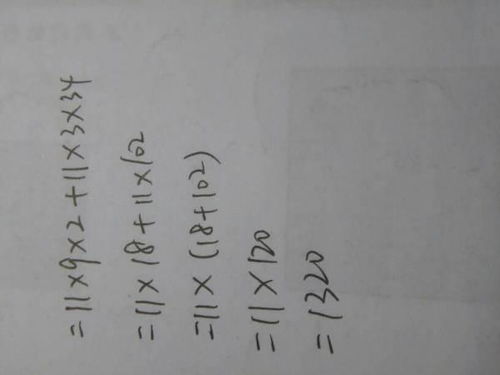 =11×9×2+11×3×34
=11×18+11×102
=11×(18+102)
=11×120
=1320